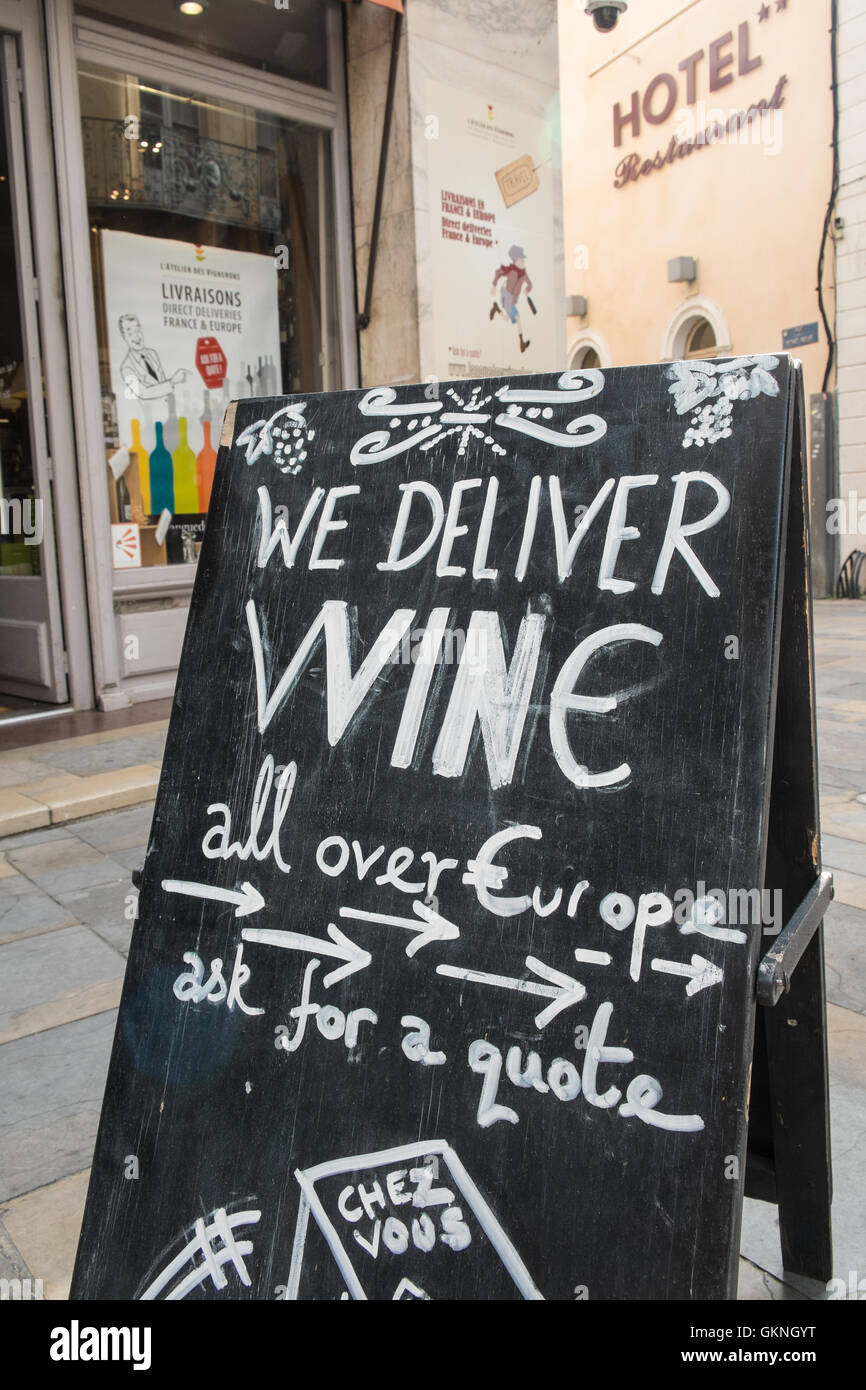 HOTEL**
Restaurant
L'ATELIER DES VIGNERONS
TRAVEL
LIVRAISONS EN
FRANCE & EUROPE
Direct deliveries
France & Europe *
* Ask for a quote
L'ATELIER DES VIGNERONS
LIVRAISONS
DIRECT DELIVERIES
FRANCE & EUROPE
ASK FOR
A QUOTE
WE DELIVER
WINE
all over €urope
ask for a quote
CHEZ
VOUS
alamy
Image ID: GKNGYT
www.alamy.com